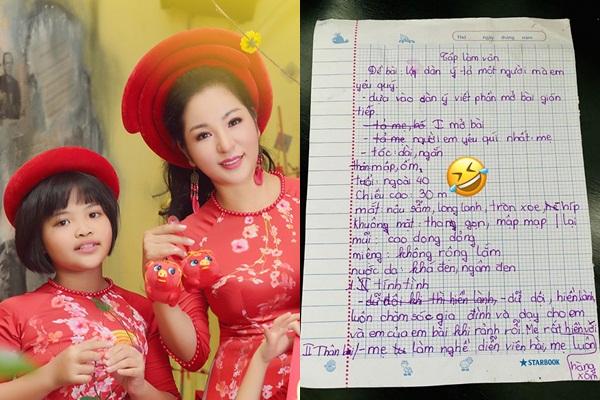 Thứ ngày tháng năm
Tập làm văn
Đề bài: lập dàn ý tả một người mà em
yêu quý.
- dựa vào dàn ý viết phần mở bài gián
tiếp.
- tả mẹ, bố I mở bài
- tả mẹ người em yêu quí nhất: mẹ
- tóc: dài, ngắn
thân: mập, ốm,
tuổi: ngoài 40
Chiều cao: 30 m
mắt: nâu sẫm, long lanh, tròn xoe, híp
khuôn mặt: thon gọn, mập mạp
mũi: cao dong dỏng
miệng: không rộng lắm
nước da: khá đen, ngăm đen
II tính tình
- dữ dội khi thì hiền lành, - dữ dội, hiền lành
luôn chăm sóc gia đình và dạy cho em
và em của em bài khi rảnh rỗi. Mẹ rất hiền với
II Thân bài - mẹ làm nghề diễn viên hài, mẹ luôn
hàng
xóm
STARBOOK